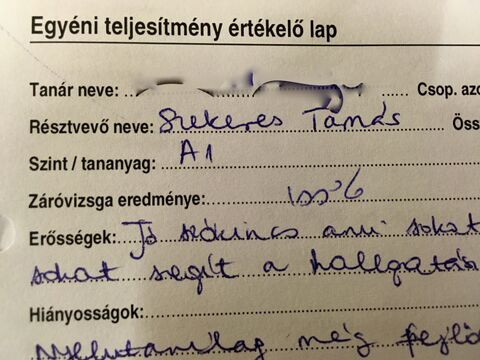 Egyéni teljesítmény értékelő lap
Tanár neve: Csop. azo
Résztvevő neve: Szekeres Tamás Öss
Szint / tananyag: A1
Záróvizsga eredménye: 100%
Erősségek: Jó szókincs ami sokat
sokat segít a hallgatás
Hiányosságok:
Nyelvtanilag még fejlő